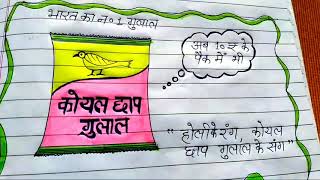 भारत का न० 1 गुलाल
कोयल छाप
गुलाल
अब 10 रु के
पैक में भी
"होली के रंग, कोयल
छाप गुलाल के संग"